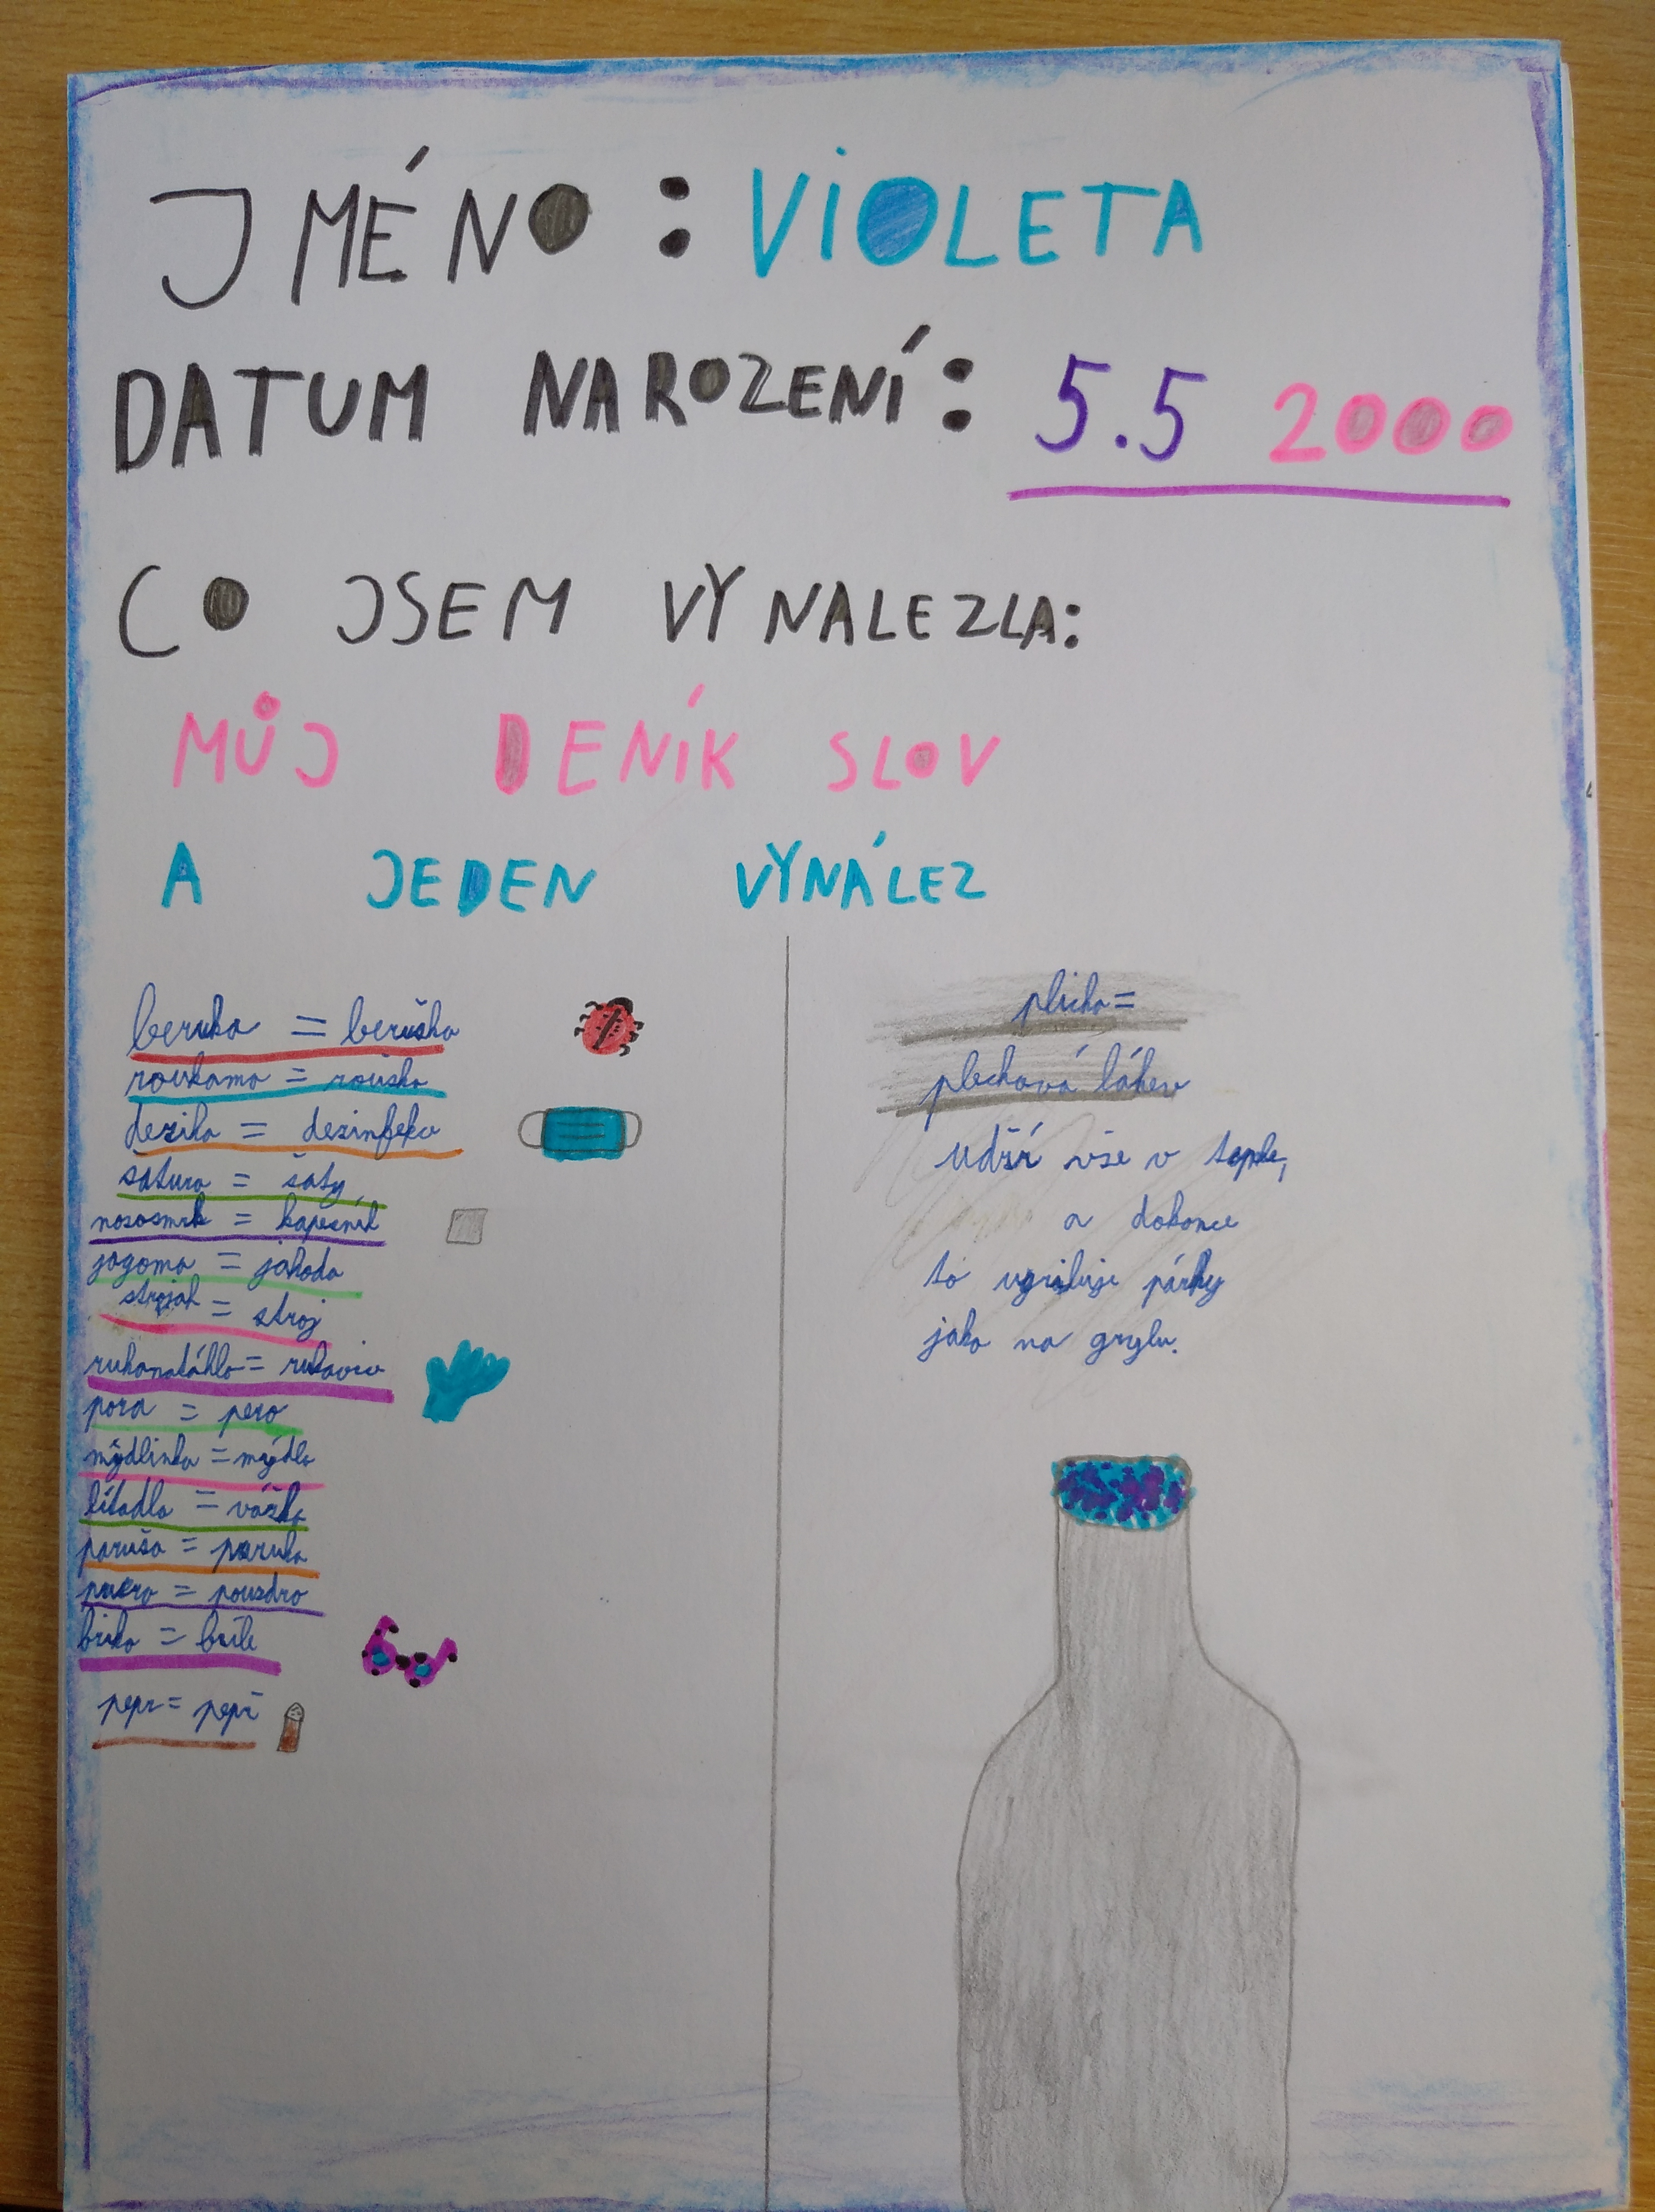 JMÉNO: VIOLETA
DATUM NAROZENÍ: 5.5 2000
CO JSEM VYNALEZLA:
MŮJ DENÍK SLOV
A JEDEN VYNÁLEZ
beruka = beruška
roukama = rouška
dezika = dezinfekce
šatura = šaty
nososmrk = kapesník
jagoma = jahoda
strojah = stroj
rukanatáhlo = rukavice
pora = pero
mýdlinka = mýdlo
lítadla = vážka
paruša = paruka
= pouzdro
brika = brýle
pepr = pepř
plicha =
plechová láhev
udží vše v teple,
a dokonce
to ugriluje párky
jako na grylu.